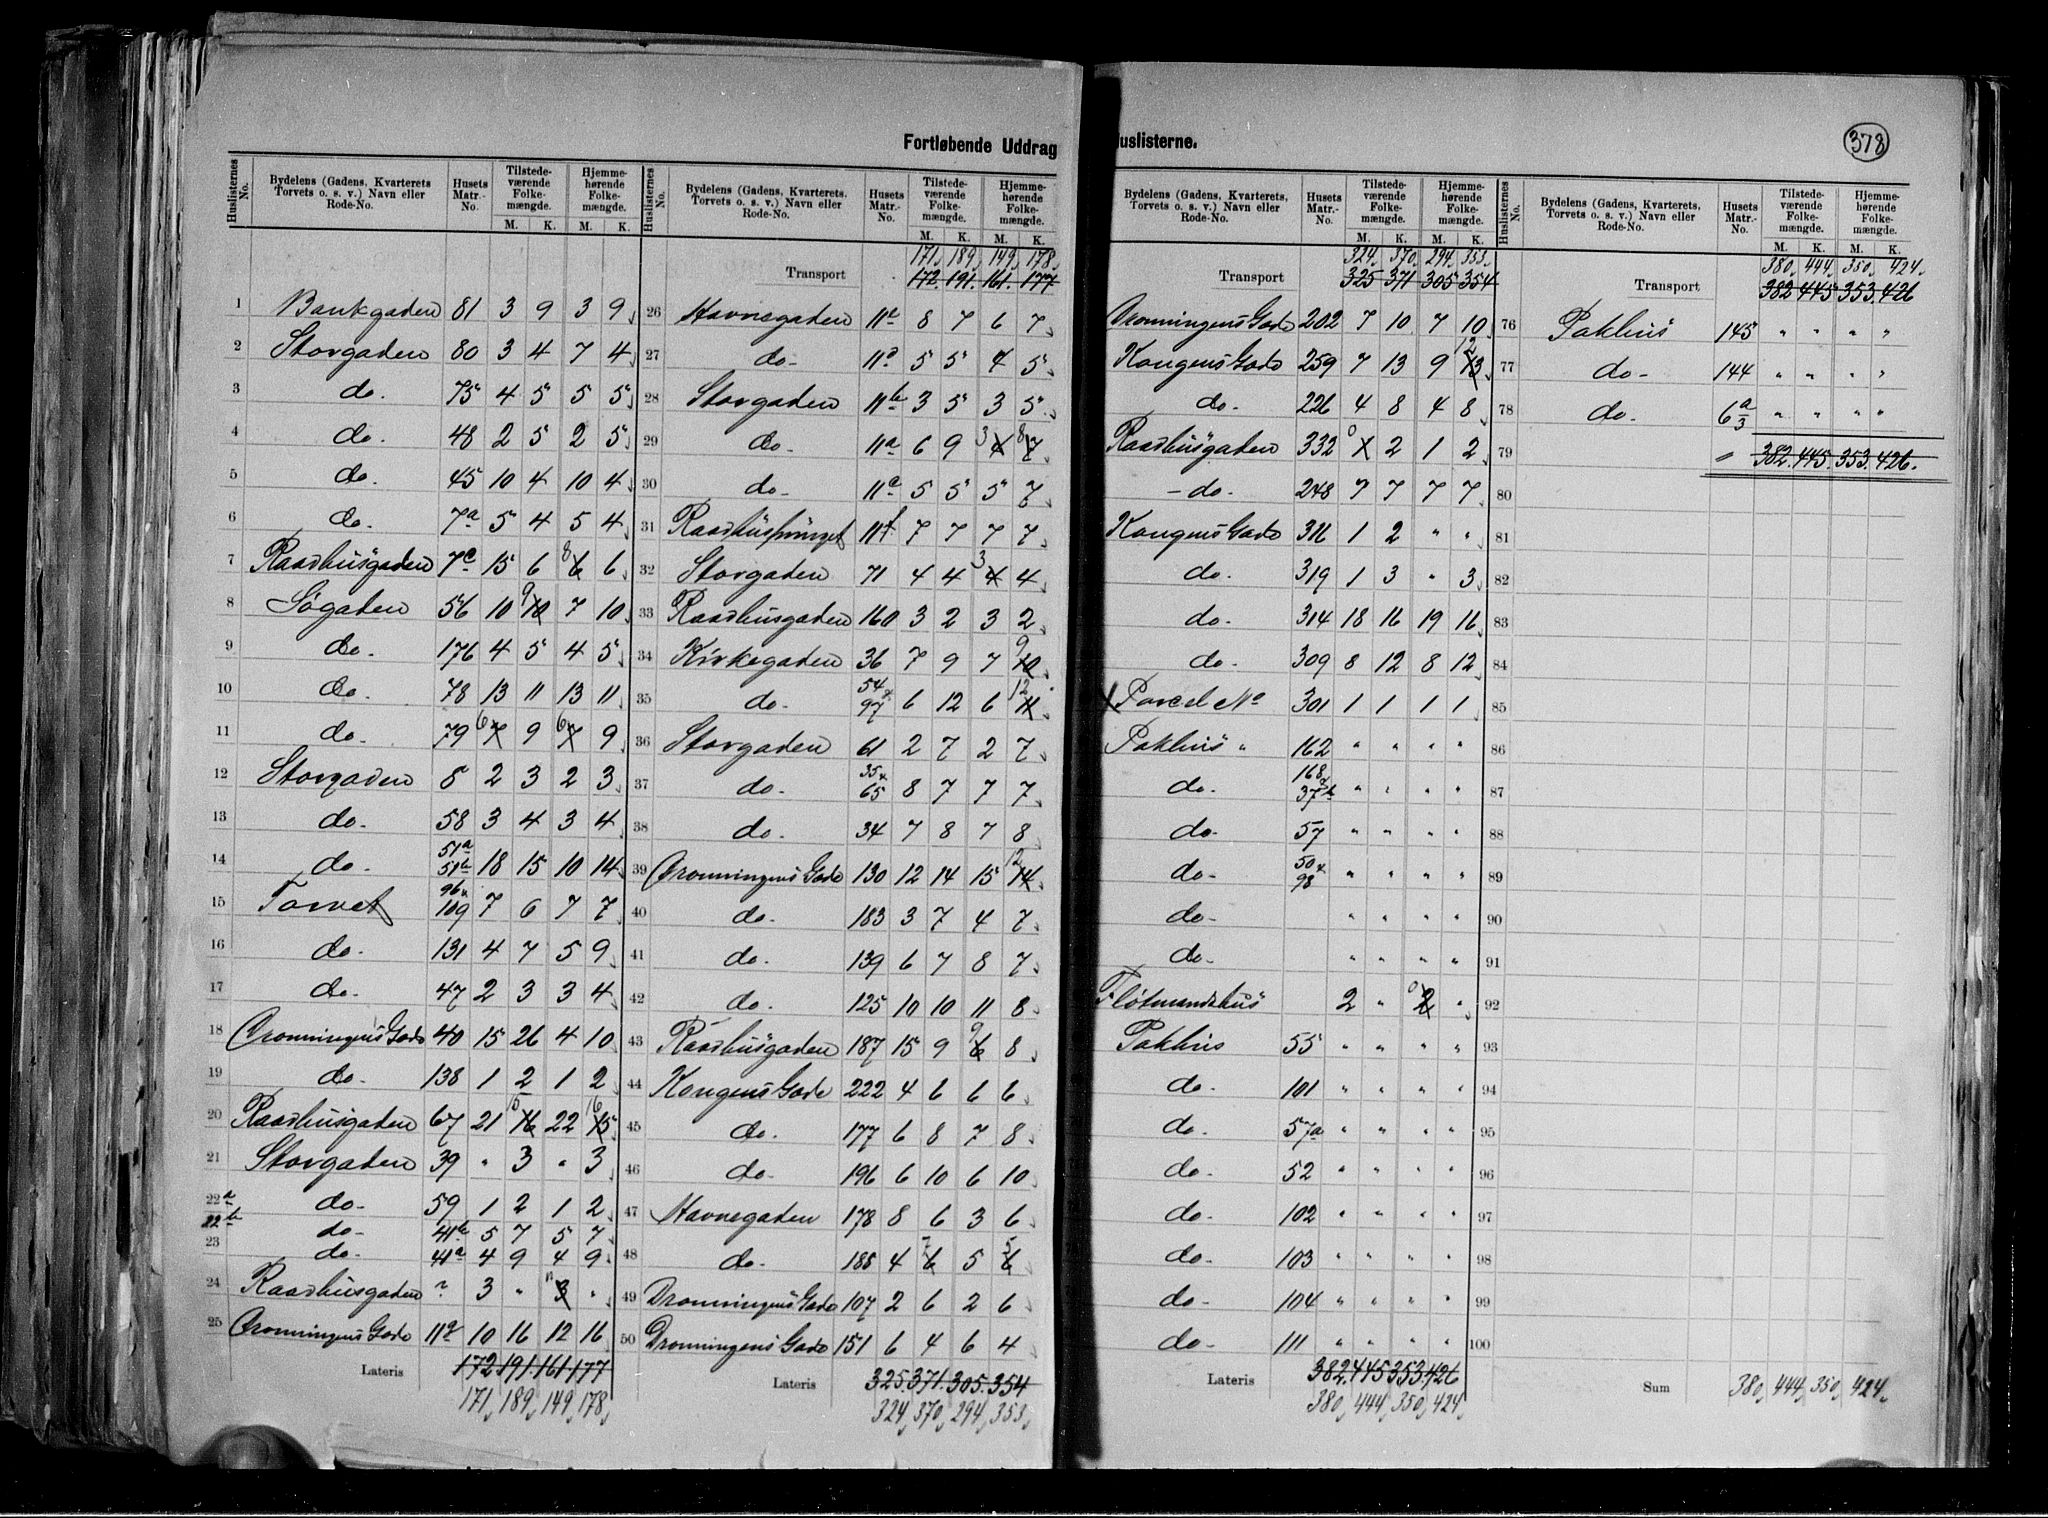 378
Fortløbende Uddrag
Huslisterne.
Huslisternes No. | Bydelens (Gadens, Kvarterets Torvets o. s. v.) Navn eller Rode-No. | Husets Matr.-No. | Tilstedeværende Folkemængde. M. K. | Hjemmehørende Folkemængde. M. K.
1 Bankgaden 81 3 9 3 9
2 Storgaden 80 3 4 7 4
3 do. 75 4 5 5 5
4 do. 48 2 5 2 5
5 do. 45 10 4 10 4
6 do. 7a 5 4 5 4
7 Raadhusgaden 7c 15 6 8 6 6
8 Søgaden 56 10 9 10 7 10
9 do. 176 4 5 4 5
10 do. 78 13 11 13 11
11 do. 79 6 7 9 6 7 9
12 Storgaden 8 2 3 2 3
13 do. 58 3 4 3 4
14 do. 51a 51b 18 15 10 14
15 Torvet 96 x 109 7 6 7 7
16 do. 131 4 7 5 9
17 do. 47 2 3 3 4
18 Dronningens Gade 40 15 26 4 10
19 do. 138 1 2 1 2
20 Raadhusgaden 67 21 15 16 22 16 15
21 Storgaden 39 " 3 " 3
22a do. 59 1 2 1 2
22b do. 41b 5 7 5 7
23 do. 41a 4 9 4 9
24 Raadhusgaden " 3 " " 3 "
25 Dronningens Gade 11a 10 16 12 16
Lateris 172. 191. 161. 177
171 189 149 178
Huslisternes No. | Bydelens (Gadens, Kvarterets, Torvets o. s. v.) Navn eller Rode-No. | Husets Matr.-No. | Tilstedeværende Folkemængde. M. K. | Hjemmehørende Folkemængde. M. K.
171 189 149 178
Transport 172. 191. 161. 177
26 Havnegaden 11e 8 7 6 7
27 do. 11d 5 5 4 5
28 Storgaden 11b 3 5 3 5
29 do. 11a 6 9 3 4 8 7
30 do. 11a 5 5 5 7
31 11f 7 7 7 7
32 Storgaden 71 4 4 3 4 4
33 Raadhusgaden 160 3 2 3 2
34 Kirkegaden 36 7 9 7 9 10
35 do. 54 x 97 6 12 6 12 11
36 Storgaden 61 2 7 2 7
37 do. 35 x 65 8 7 7 7
38 do. 34 7 8 7 8
39 Dronningens Gade 130 12 14 15 12 14
40 do. 183 3 7 4 7
41 do. 139 6 7 8 7
42 do. 125 10 10 11 8
43 Raadhusgaden 187 15 9 9 6 8
44 Kongens Gade 222 4 6 6 6
45 do. 177 6 8 7 8
46 do. 196 6 10 6 10
47 Havnegaden 178 8 6 3 6
48 do. 188 4 7 6 5 5 6
49 Dronningens Gade 107 2 6 2 6
50 Dronningens Gade 151 6 4 6 4
Lateris 325. 371. 305. 354
324 370 294 353
Bydelens (Gadens, Kvarterets, Torvets o. s. v.) Navn eller Rode-No. | Husets Matr.-No. | Tilstedeværende Folkemængde. M. K. | Hjemmehørende Folkemængde. M. K.
324 370 294 353
Transport 325 371 305 354
Dronningens Gade 202 7 10 7 10
Kongens Gade 259 7 13 9 12 13
do. 226 4 8 4 8
Raadhusgaden 332 0 1 2 1 2
do. 248 7 7 7 7
Kongens Gade 316 1 2 " "
do. 319 1 3 " 3
do. 314 18 16 19 16
do. 309 8 12 8 12
X Parcel No 301 1 1 1 1
Pakhus " 162 " " " "
do. 168 x 37b " " " "
do. 57 " " " "
do. 50 x 98 " " " "
do. " " " "
do. " " " "
Fløtmandshus 2 " 0 2 "
Pakhus 55 " " " "
do. 101 " " " "
do. 57a " " " "
do. 52 " " " "
do. 102 " " " "
do. 103 " " " "
do. 104 " " " "
do. 111 " " " "
Lateris 382. 445 353. 426
380 444 350 424
Huslisternes No. | Bydelens (Gadens, Kvarterets, Torvets o. s. v.) Navn eller Rode-No. | Husets Matr.-No. | Tilstedeværende Folkemængde. M. K. | Hjemmehørende Folkemængde. M. K.
380 444 350 424
Transport 382 445 353. 426
76 Pakhus 145 " " " "
77 do. 144 " " " "
78 do. 6a/3 " " " "
79 " 382. 445. 353. 426.
80
81
82
83
84
85
86
87
88
89
90
91
92
93
94
95
96
97
98
99
100
Sum 380 444 350 424